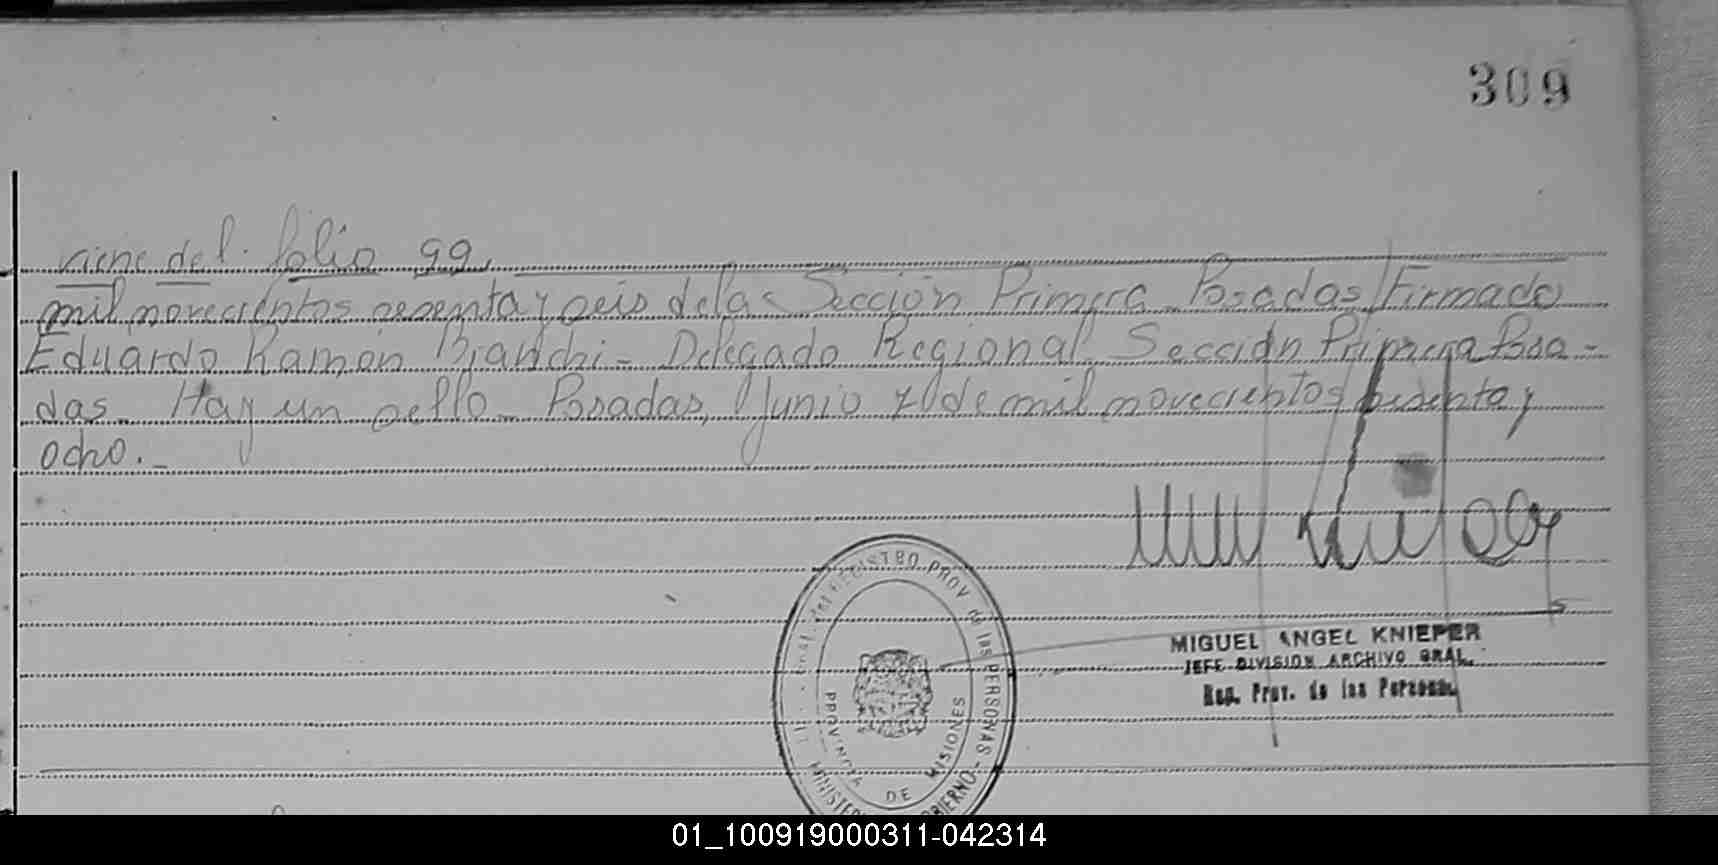 309
viene del folio 99.
mil novecientos sesenta y seis de la Sección Primera Posadas/Firmado
Eduardo Ramón Bianchi - Delegado Regional Sección Primera Posa-
das. Hay un sello. Posadas, Junio de mil novecientos sesenta y
ocho.-
REGISTRO PROV de las PERSONAS
PROVINCIA DE MISIONES
MIGUEL ANGEL KNIEPER
JEFE DIVISION ARCHIVO GRAL.
Reg. Prov. de las Personas
01_100919000311-042314